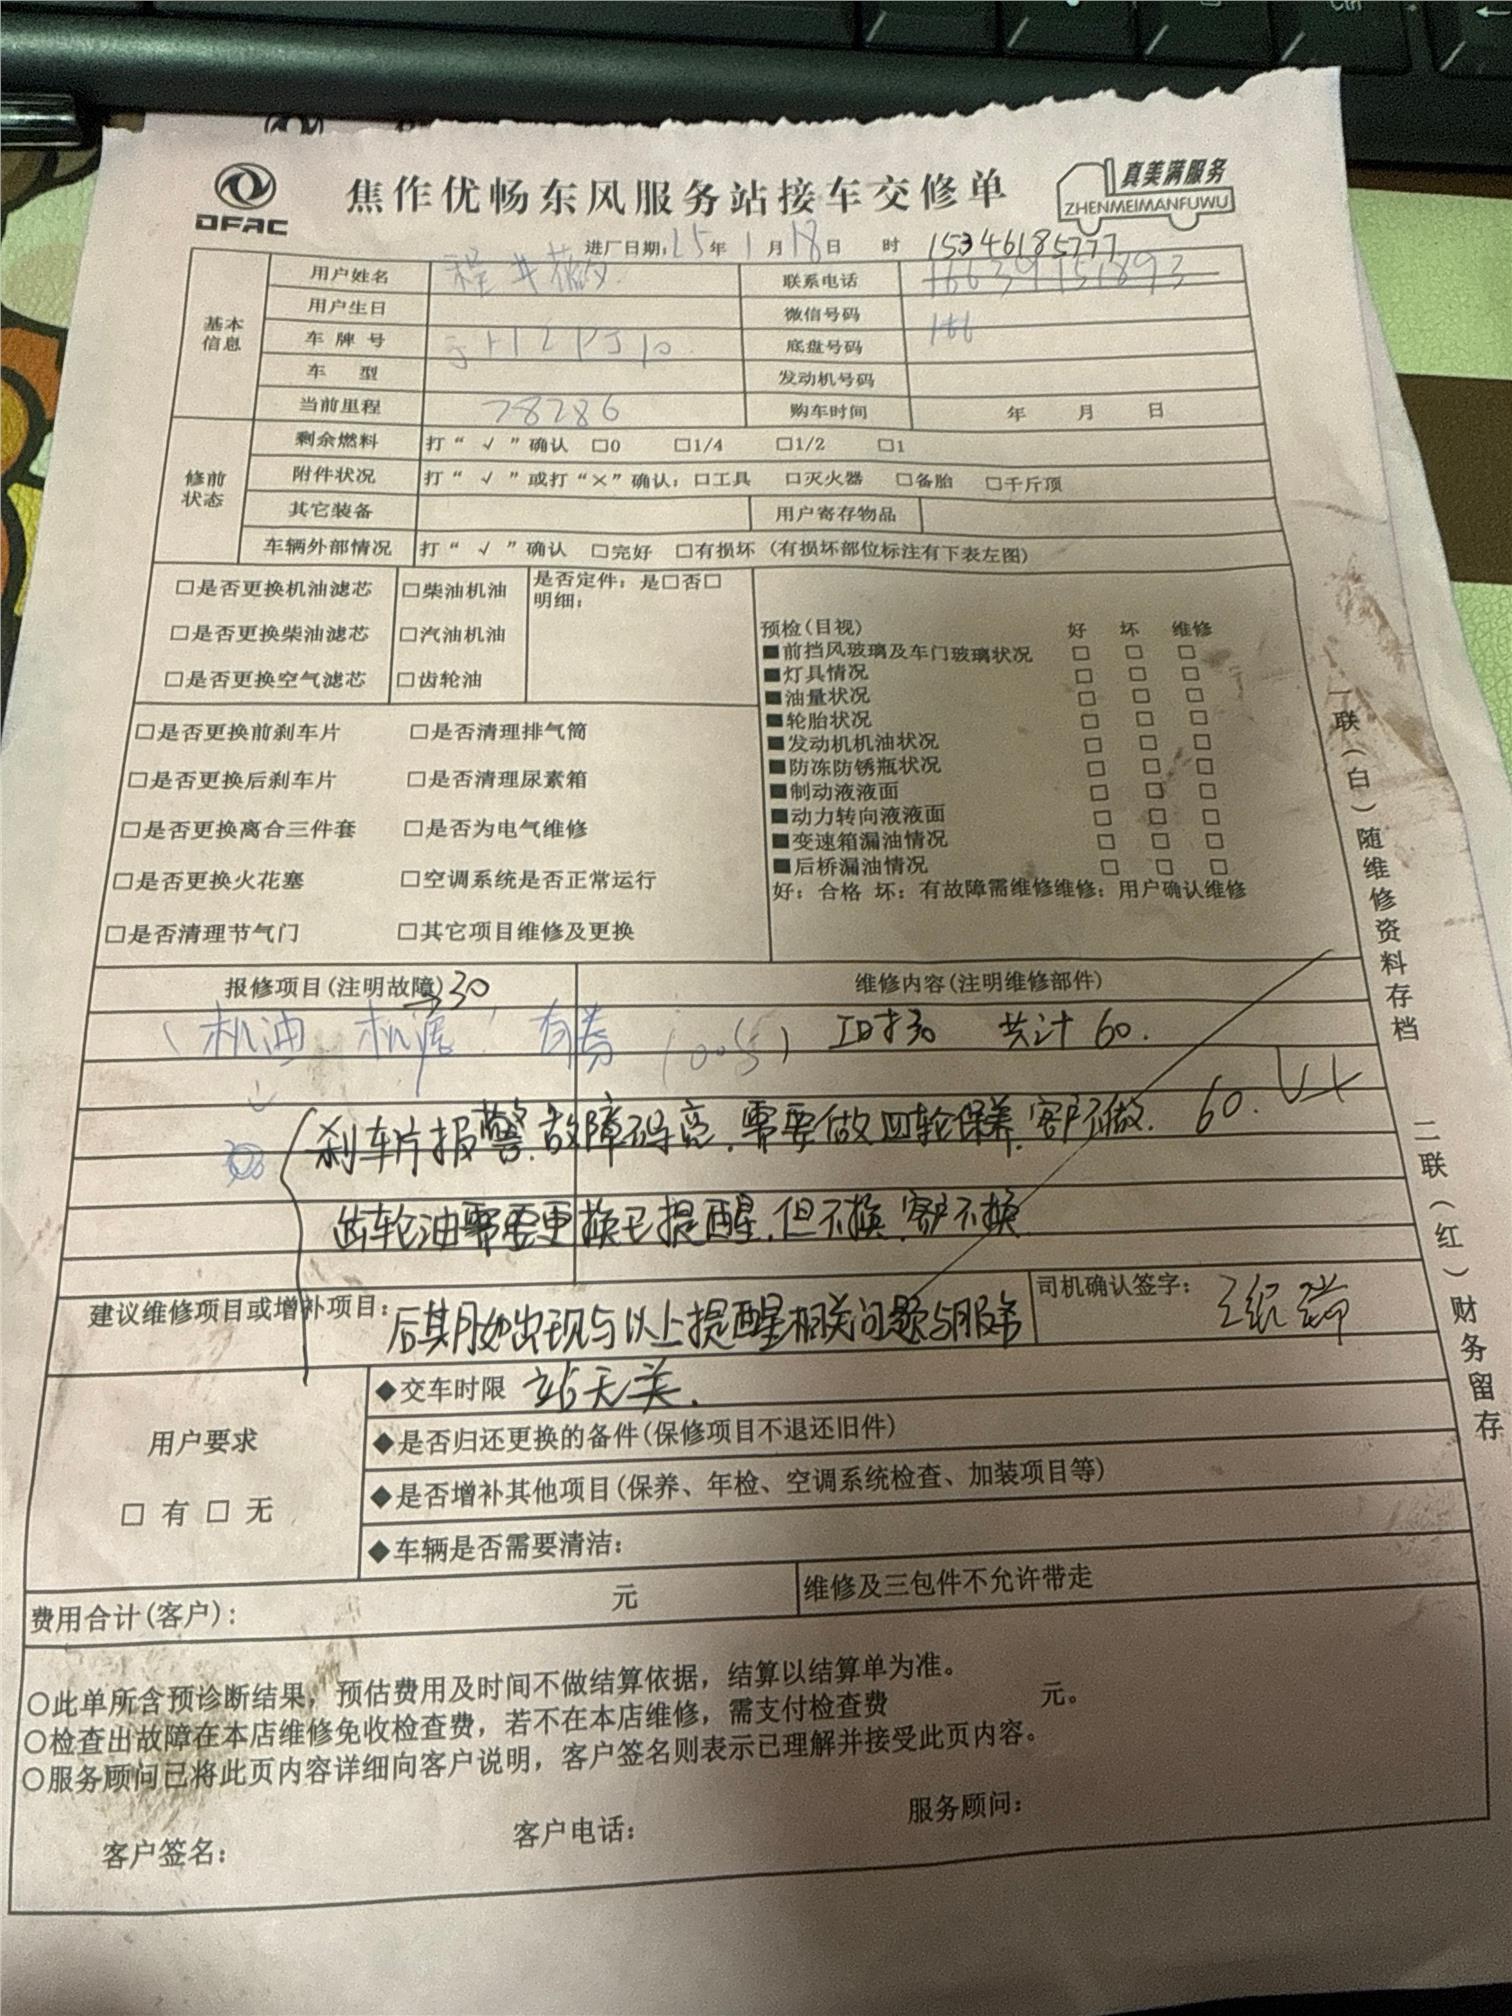 DFAC
焦作优畅东风服务站接车交修单
真美满服务
ZHENMEIMANFUWU
进厂日期:25年1月18日 时 15346185777
基本信息
用户姓名 程 联系电话
用户生日 微信号码
车牌号 底盘号码 166
车 型 发动机号码
当前里程 78286 购车时间 年 月 日
修前状态
剩余燃料 打“√”确认 □0 □1/4 □1/2 □1
附件状况 打“√”或打“×”确认:□工具 □灭火器 □备胎 □千斤顶
其它装备 用户寄存物品
车辆外部情况 打“√”确认 □完好 □有损坏(有损坏部位标注有下表左图)
□是否更换机油滤芯 □柴油机油 是否定件:是□否□
明细:
□是否更换柴油滤芯 □汽油机油
□是否更换空气滤芯 □齿轮油
□是否更换前刹车片 □是否清理排气筒
□是否更换后刹车片 □是否清理尿素箱
□是否更换离合三件套 □是否为电气维修
□是否更换火花塞 □空调系统是否正常运行
□是否清理节气门 □其它项目维修及更换
预检(目视) 好 坏 维修
■前挡风玻璃及车门玻璃状况 □ □ □
■灯具情况 □ □ □
■油量状况 □ □ □
■轮胎状况 □ □ □
■发动机机油状况 □ □ □
■防冻防锈瓶状况 □ □ □
■制动液液面 □ □ □
■动力转向液液面 □ □ □
■变速箱漏油情况 □ □ □
■后桥漏油情况 □ □ □
好:合格 坏:有故障需维修维修:用户确认维修
报修项目(注明故障) 30 维修内容(注明维修部件)
机油 机滤 有券 工时30 共计60.
刹车片报警.故障码亮.需要做四轮保养.客户不做. 60.
齿轮油需要更换已提醒.但不换.客户不换
建议维修项目或增补项目: 后其月如出现与以上提醒相关问题与服务
司机确认签字:
用户要求
□ 有 □ 无
◆交车时限 站无关.
◆是否归还更换的备件(保修项目不退还旧件)
◆是否增补其他项目(保养、年检、空调系统检查、加装项目等)
◆车辆是否需要清洁:
费用合计(客户): 元 维修及三包件不允许带走
○此单所含预诊断结果,预估费用及时间不做结算依据,结算以结算单为准。
○检查出故障在本店维修免收检查费,若不在本店维修,需支付检查费 元。
○服务顾问已将此页内容详细向客户说明,客户签名则表示已理解并接受此页内容。
客户签名: 客户电话: 服务顾问:
一联(白)随维修资料存档
二联(红)财务留存